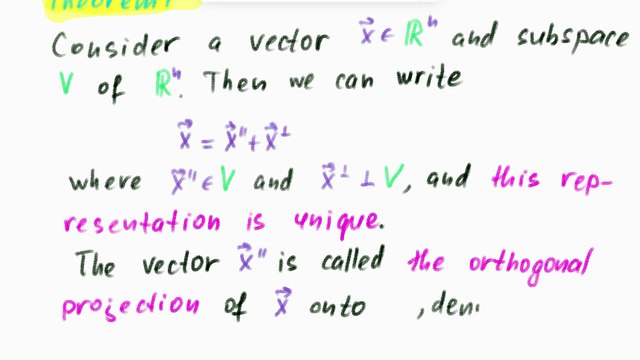 Theorem
Consider a vector x⃗ ∈ ℝⁿ and subspace
V of ℝⁿ. Then we can write
x⃗ = x⃗" + x⃗⊥
where x⃗" ∈ V and x⃗⊥ ⊥ V, and this rep-
resentation is unique.
The vector x⃗" is called the orthogonal
projection of x⃗ onto , den